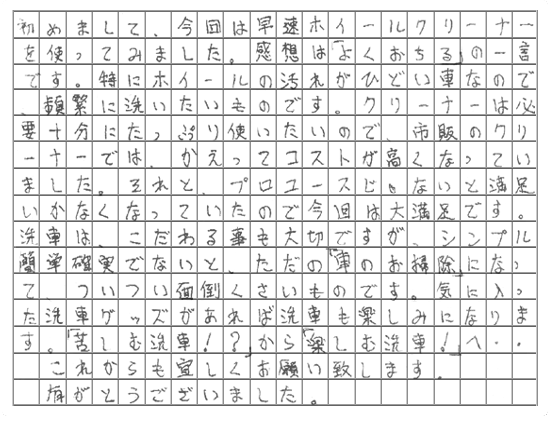 初めまして、今回は早速ホイールクリーナー
を使ってみました。感想は「よくおちる」の一言
です。特にホイールの汚れがひどい車なので
、頻繁に洗いたいものです。クリーナーは必
要十分にたっぷり使いたいので、市販のクリ
ーナーでは、かえってコストが高くなってい
ました。それと、プロユースじゃないと満足
いかなくなっていたので今回は大満足です。
洗車は、こだわる事も大切ですが、シンプル
簡単確実でないと、ただの「車のお掃除」になっ
て、ついつい面倒くさいものです。気に入っ
た洗車グッズがあれば洗車も楽しみになりま
す。「苦しむ洗車!?」から「楽しむ洗車!」へ・・
これからも宜しくお願い致します.
有がとうございました。